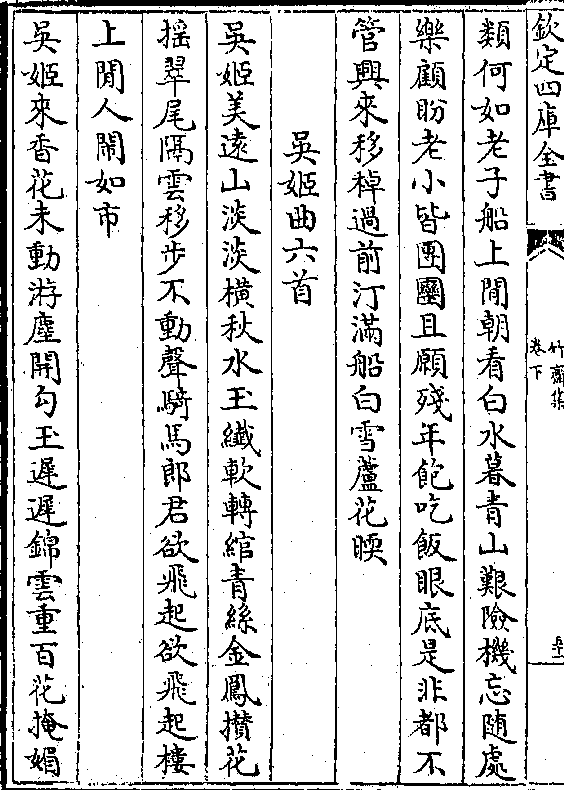 欽定四庫全書
竹齋集
卷下
類何如老子船上閒朝看白水暮青山艱險機忘随處
樂顧盼老小皆團圞且願殘年飽吃飯眼底是非都不
管興來移棹過前汀滿船白雪蘆花暎
吳姬曲六首
吳姬美遠山淡淡橫秋水玉纖軟轉綰青絲金鳳攅花
揺翠尾隔雲移步不動聲騎馬郎君欲飛起欲飛起樓
上閒人閙如市
吳姬來香花未動游塵開勾玉遲遲錦雲重百花掩媚